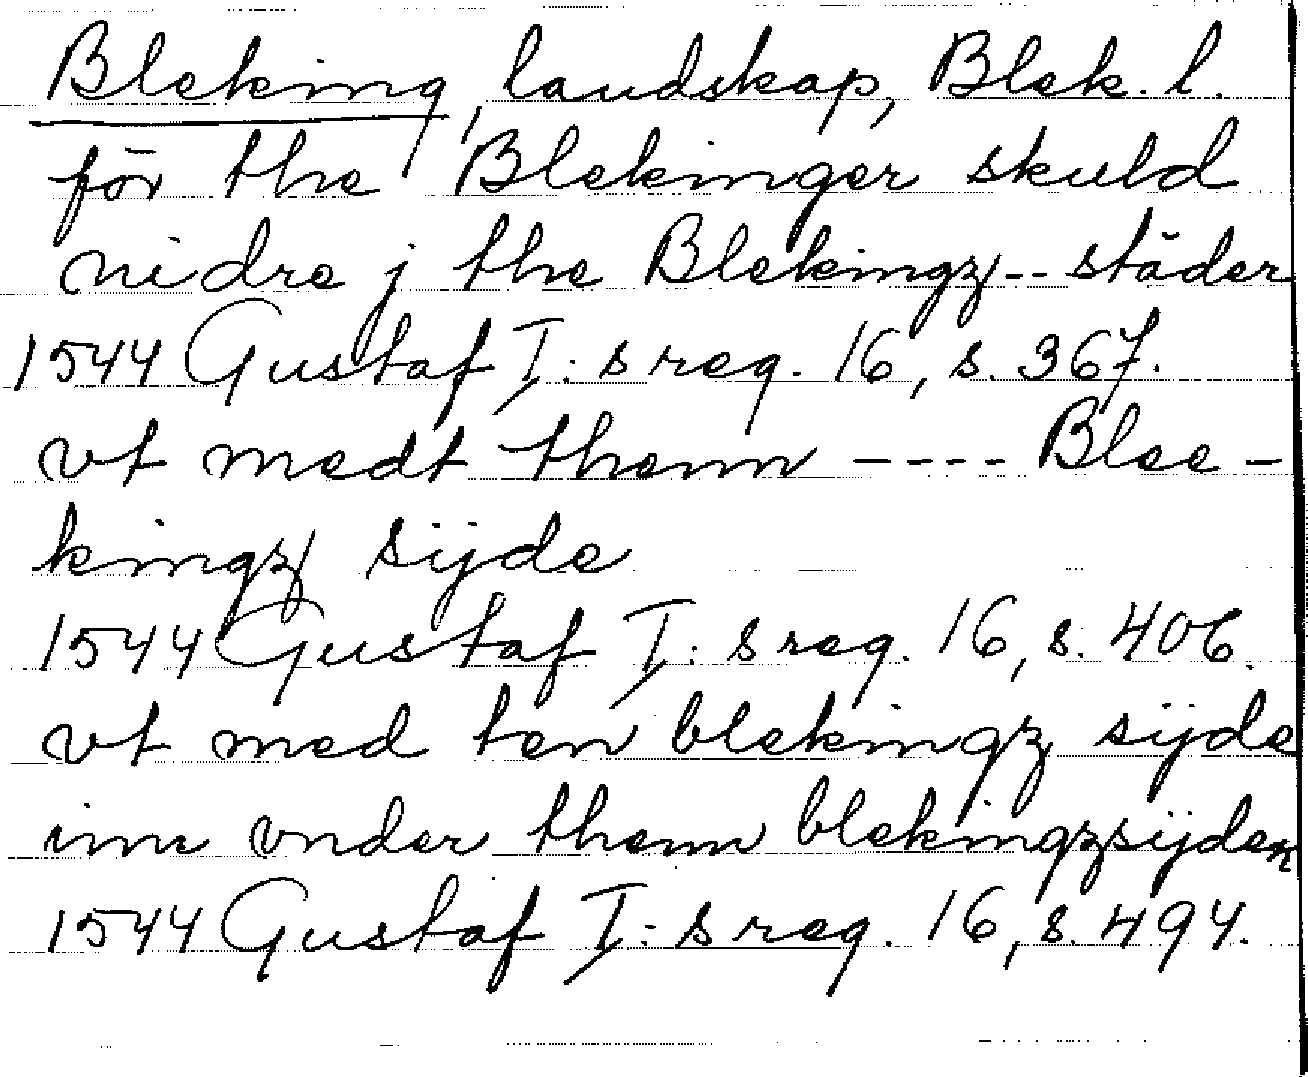 Bleking, landskap, Blek. l.
för the Blekinger skuld
nidre j the Blekingz -- städer
1544 Gustaf I:s reg. 16, s. 367.
vt medt thenn ---- Blee-
kingz sijde
1544 Gustaf I:s reg. 16, s. 406.
vt med ten blekingz sijde
inn vnder thenn blekingzsijden
1544 Gustaf I:s reg. 16, s. 494.